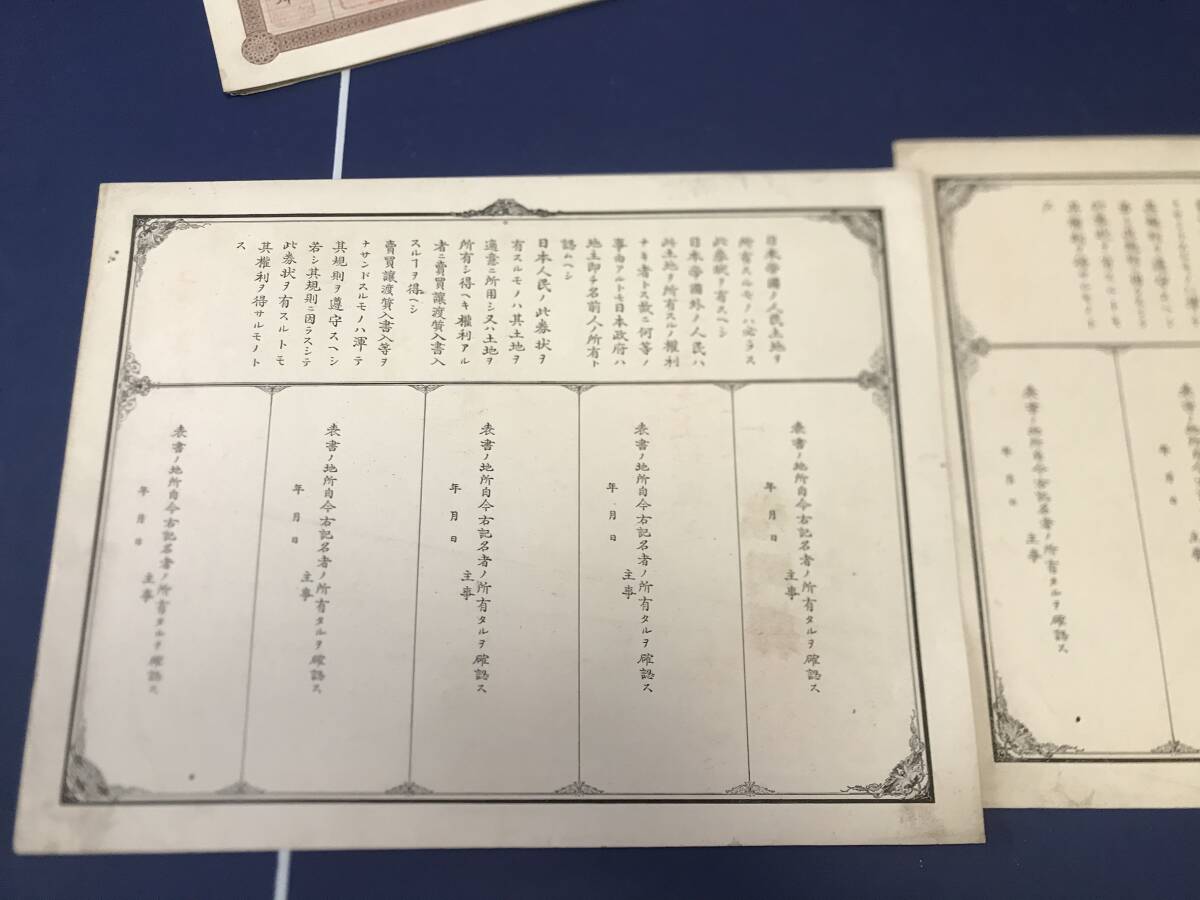 日本帝國ノ人民土地ヲ
所有スルモノハ必ラス
此券狀ヲ有スヘシ
日本帝國外ノ人民ハ
此土地ヲ所有スルノ權利
ナキ者トス故ニ何等ノ
事由アルトモ日本政府ハ
地主即チ名前人ノ所有ト
認ムヘシ
日本人民ノ此券狀ヲ
有スルモノハ其土地ヲ
適意ニ所用シ又ハ土地ヲ
所有シ得ヘキ權利アル
者ニ賣買讓渡質入書入
スルヿヲ得ヘシ
賣買讓渡質入書入等ヲ
ナサンドスルモノハ渾テ
其規則ヲ遵守スヘシ
若シ其規則ニ因ラスシテ
此券狀ヲ有スルトモ
其權利ヲ得サルモノト
ス
表書ノ地所自今右記名者ノ所有タルヲ確認ス
年 月 日 主事
表書ノ地所自今右記名者ノ所有タルヲ確認ス
年 月 日 主事
表書ノ地所自今右記名者ノ所有タルヲ確認ス
年 月 日 主事
表書ノ地所自今右記名者ノ所有タルヲ確認ス
年 月 日 主事
表書ノ地所自今右記名者ノ所有タルヲ確認ス
年 月 日 主事
年 月 日 主事
表書ノ地所自今右記名者ノ所有タルヲ確認ス
年 月 日 主事